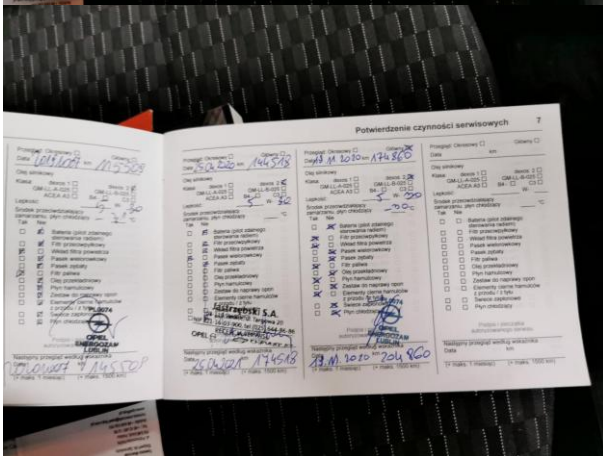 Potwierdzenie czynności serwisowych 7
Przegląd: Okresowy Główny
Data km 115509
Olej silnikowy
Klasa: dexos 1 dexos 2
GM-LL-A-025 GM-LL-B-025
ACEA A3
Lepkość: 5 W- 30
Środek przeciwdziałający
zamarzaniu, płyn chłodzący
Tak Nie
Bateria (pilot zdalnego
sterowania radiem)
Filtr przeciwpyłkowy
Wkład filtra powietrza
Pasek wielorowkowy
Pasek zębaty
Filtr paliwa
Olej przekładniowy
Płyn hamulcowy
Zestaw do naprawy opon
Elementy cierne hamulców
z przodu / z tyłu
Świece zapłonowe
Płyn chłodzący
PL0074
OPEL
ENERGOZAM
LUBLIN
Następny przegląd według wskaźnika
145509
(+ maks. 1 miesiąc) (+ maks. 1500 km)
Przegląd: Okresowy Główny
Data 25.04.2020 km 144518
Olej silnikowy
Klasa: dexos 1 dexos 2
GM-LL-A-025 GM-LL-B-025
ACEA A3 B4 C3
Lepkość: 5 W- 30
Środek przeciwdziałający
zamarzaniu, płyn chłodzący °C
Tak Nie
Bateria (pilot zdalnego
sterowania radiem)
Filtr przeciwpyłkowy
Wkład filtra powietrza
Pasek wielorowkowy
Pasek zębaty
Filtr paliwa
Olej przekładniowy
Płyn hamulcowy
Zestaw do naprawy opon
Elementy cierne hamulców
z przodu / z tyłu
Jastrzębski S.A.
OPEL
Następny przegląd według wskaźnika
Data 25.04.2021 km 174518
(+ maks. 1 miesiąc) (+ maks. 1500 km)
Przegląd: Okresowy Główny
Data 19.11.2020 km 174860
Olej silnikowy
Klasa: dexos 1 dexos 2
GM-LL-A-025 GM-LL-B-025
ACEA A3 B4 C3
Lepkość: 5 W- 30
Środek przeciwdziałający
zamarzaniu, płyn chłodzący
Tak Nie
Bateria (pilot zdalnego
sterowania radiem)
Filtr przeciwpyłkowy
Wkład filtra powietrza
Pasek wielorowkowy
Pasek zębaty
Filtr paliwa
Olej przekładniowy
Płyn hamulcowy
Zestaw do naprawy opon
Elementy cierne hamulców
z przodu / z tyłu
Świece zapłonowe
Płyn chłodzący
PL0074
OPEL
ENERGOZAM
LUBLIN
Następny przegląd według wskaźnika
19.11.2020 km 204860
(+ maks. 1 miesiąc) (+ maks. 1500 km)
Przegląd: Okresowy Główny
Data km
Olej silnikowy
Klasa: dexos 1 dexos 2
GM-LL-A-025 GM-LL-B-025
ACEA A3 B4 C3
Lepkość: W-
Środek przeciwdziałający
zamarzaniu, płyn chłodzący °C
Tak Nie
Bateria (pilot zdalnego
sterowania radiem)
Filtr przeciwpyłkowy
Wkład filtra powietrza
Pasek wielorowkowy
Pasek zębaty
Filtr paliwa
Olej przekładniowy
Płyn hamulcowy
Zestaw do naprawy opon
Elementy cierne hamulców
z przodu / z tyłu
Świece zapłonowe
Płyn chłodzący
Podpis i pieczątka
autoryzowanego serwisu
Następny przegląd według wskaźnika
Data km
(+ maks. 1 miesiąc) (+ maks. 1500 km)